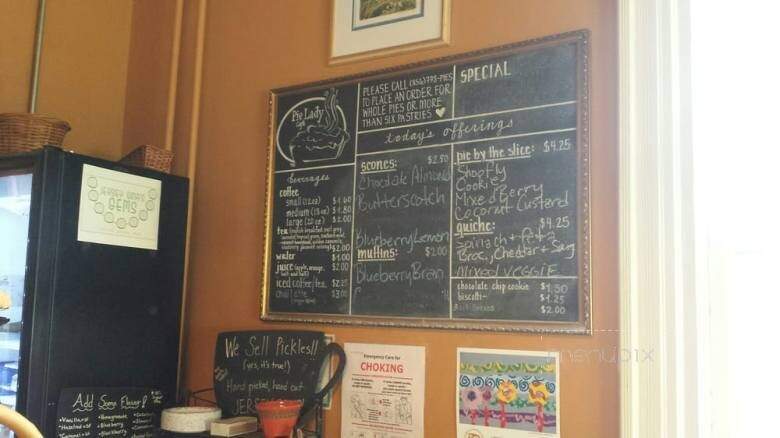 Pie Lady
Café
PLEASE CALL (856)793-PIES
TO PLACE AN ORDER FOR
WHOLE PIES OR MORE
THAN SIX PASTRIES
SPECIAL
today's offerings
beverages
coffee
small (12oz) $1.60
medium (16oz) $1.80
large (20oz) $2.00
tea
$2.00
water $1.00
juice (apple, orange, $2.00
iced coffee/tea $2.25
chai latte $3.00
scones: $2.50
Chocolate Almond
Butterscotch
Blueberry Lemon
muffins: $2.00
Blueberry Bran
pie by the slice: $4.25
Shoofly
Cookie
Mixed Berry
Coconut Custard
quiche: $4.25
Spinach + Feta
Broc, Cheddar + Saus
Mixed Veggie
chocolate chip cookie $1.50
biscotti- $1.25
$2.00
GEMS
We Sell Pickles!!
(yes, it's true!)
Hand picked, hand cut
JERSEY
Emergency Care for
CHOKING
Add Some Flavor
Vanilla
Hazelnut
Caramel
Blueberry
menupix